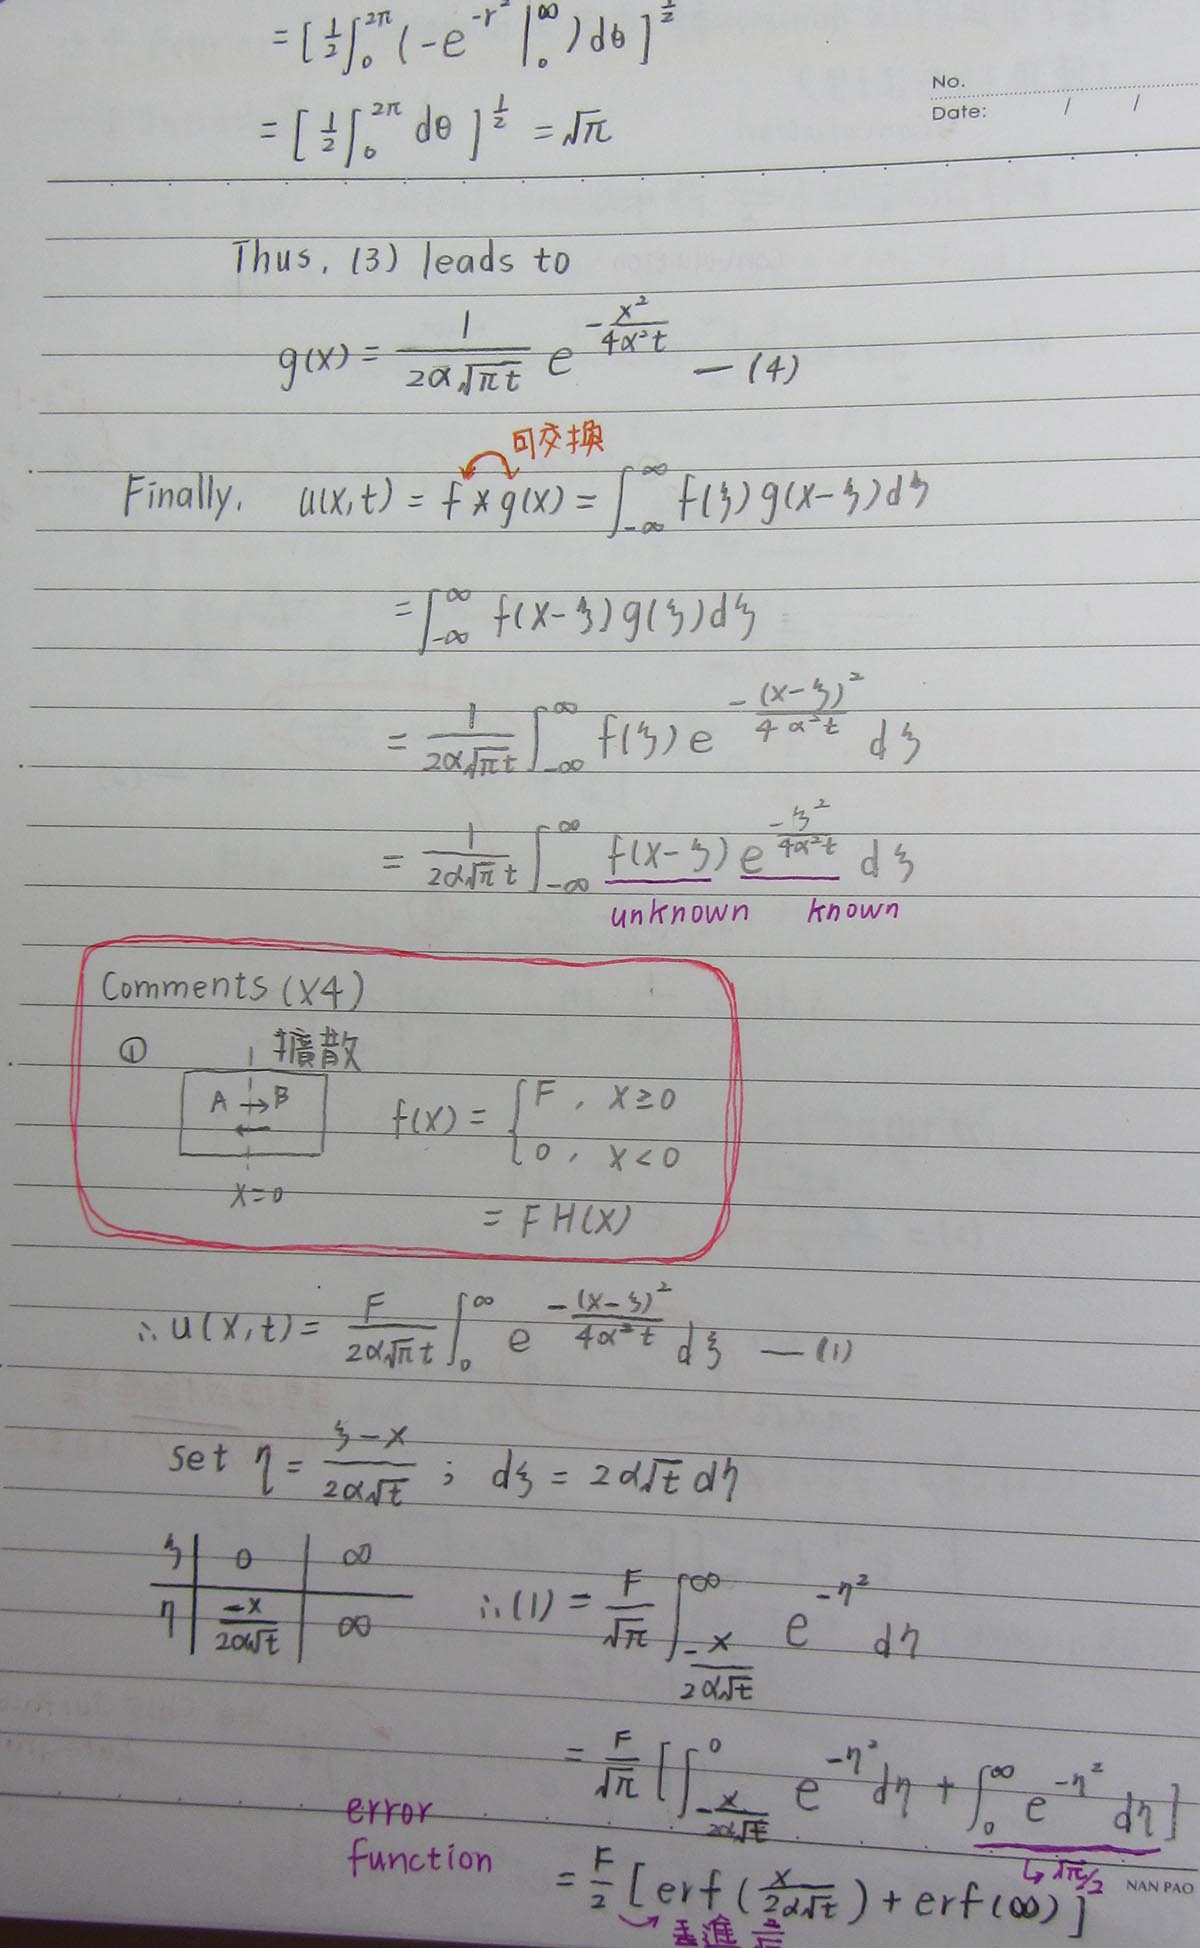 = [ 1/2 ∫_0^{2π} ( -e^{-r²} |_0^∞ ) dθ ]^{1/2}
No.
Date: / /
= [ 1/2 ∫_0^{2π} dθ ]^{1/2} = √π
Thus, (3) leads to
g(x) = 1/(2α√πt) e^{-x²/(4α²t)} — (4)
可交換
Finally, u(x,t) = f * g(x) = ∫_{-∞}^{∞} f(ξ) g(x-ξ) dξ
= ∫_{-∞}^{∞} f(x-ξ) g(ξ) dξ
= 1/(2α√π t) ∫_{-∞}^{∞} f(ξ) e^{-(x-ξ)²/(4α²t)} dξ
= 1/(2α√π t) ∫_{-∞}^{∞} f(x-ξ) e^{-ξ²/(4α²t)} dξ
unknown known
Comments (x4)
① 擴散
A → B
←
x=0
f(x) = { F , x ≥ 0
0 , x < 0
= F H(x)
∴ u(x,t) = F/(2α√π t) ∫_0^∞ e^{-(x-ξ)²/(4α²t)} dξ — (1)
Set η = (ξ-x)/(2α√t) ; dξ = 2α√t dη
ξ | 0 | ∞
η | -x/(2α√t) | ∞
∴ (1) = F/√π ∫_{-x/(2α√t)}^{∞} e^{-η²} dη
= F/√π [ ∫_{-x/(2α√t)}^{0} e^{-η²} dη + ∫_0^∞ e^{-η²} dη ]
↳ √π/2
error
function
= F/2 [ erf ( x/(2α√t) ) + erf(∞) ]
NAN PAO